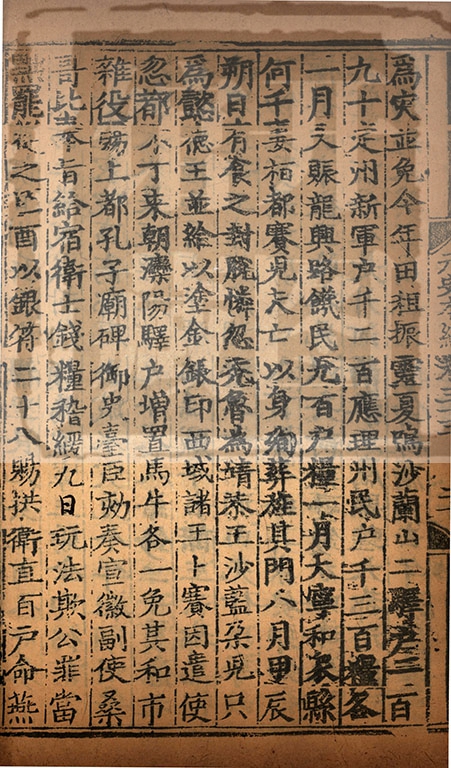 為災並免今年田租振靈夏鳴沙蘭山二驛户二百
九十定州新軍户千二百應理州民户千三百糧各
一月又賑龍興路饑民九百户糧一月大寧和衆縣
何千妻柏都賽兒夫亡以身殉葬旌其門八月甲辰
朔日有食之封脱憐忽禿魯為靖恭王沙藍朶兒只
為懿德王並給以塗金銀印西域諸王卜賽因遣使
忽都不丁来朝灤陽驛户增置馬牛各一免其和市
雜役賜上都孔子廟碑御史臺臣劾奏宣徽副使桑
哥比奉旨給宿衛士錢糧稽緩九日玩法欺公罪當
黜罷從之 酉以銀符二十八賜拱衛直百户命燕
元史本紀卷三十三 二